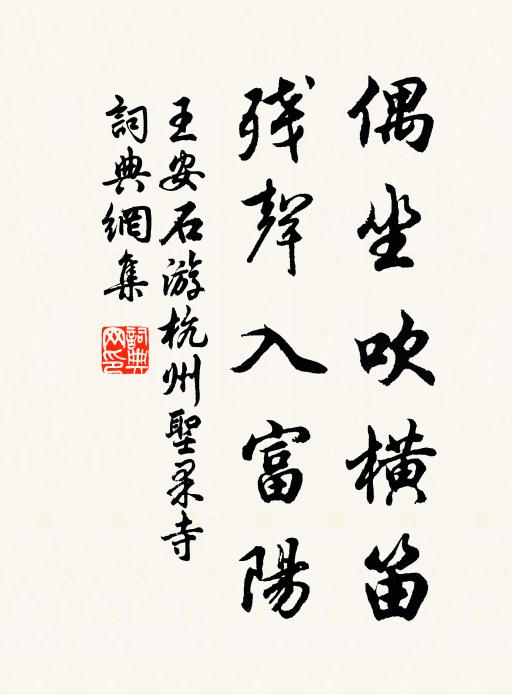 偶坐吹橫笛
殘聲入富陽
王安石游杭州聖果寺
詞典網集
詞典網印